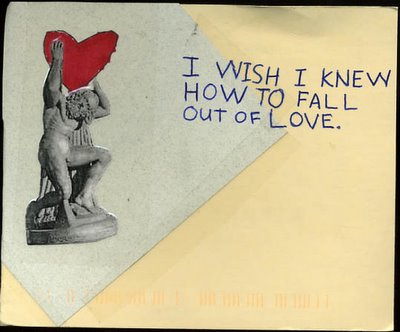 I WISH I KNEW
HOW TO FALL
OUT OF LOVE.